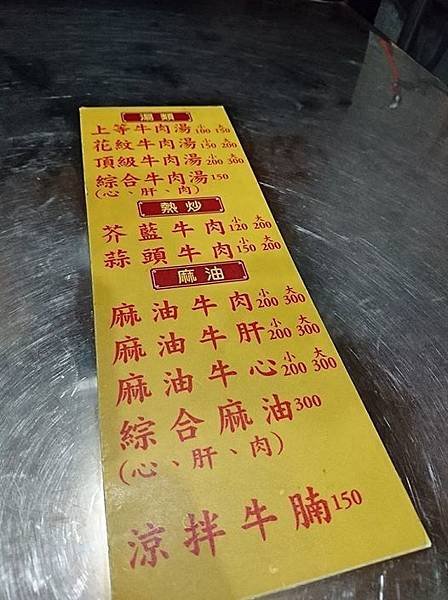 湯類
上等牛肉湯 小100 大150
花紋牛肉湯 小150 大200
頂級牛肉湯 小200 大300
綜合牛肉湯150
(心、肝、肉)
熱炒
芥藍牛肉 小120 大200
蒜頭牛肉 小150 大200
麻油
麻油牛肉 小200 大300
麻油牛肝 小200 大300
麻油牛心 小200 大300
綜合麻油300
(心、肝、肉)
涼拌牛腩150